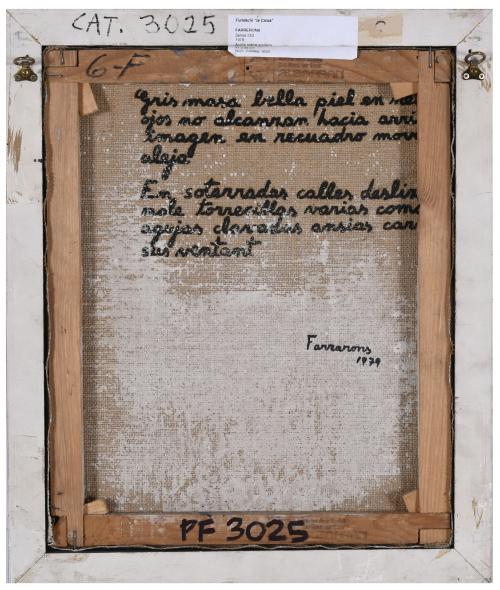 CAT. 3025
Fundació "la Caixa"
FARRERONS
1979
6-F
"Gris masa bella piel en
ojos no alcanzan hacia arri
imagen en recuadro mov
aleja
En soterradas calles desliz
mole torrecillas varias como
agujas clavadas ansias car
sus ventant"
Farrerons
1979
PF 3025